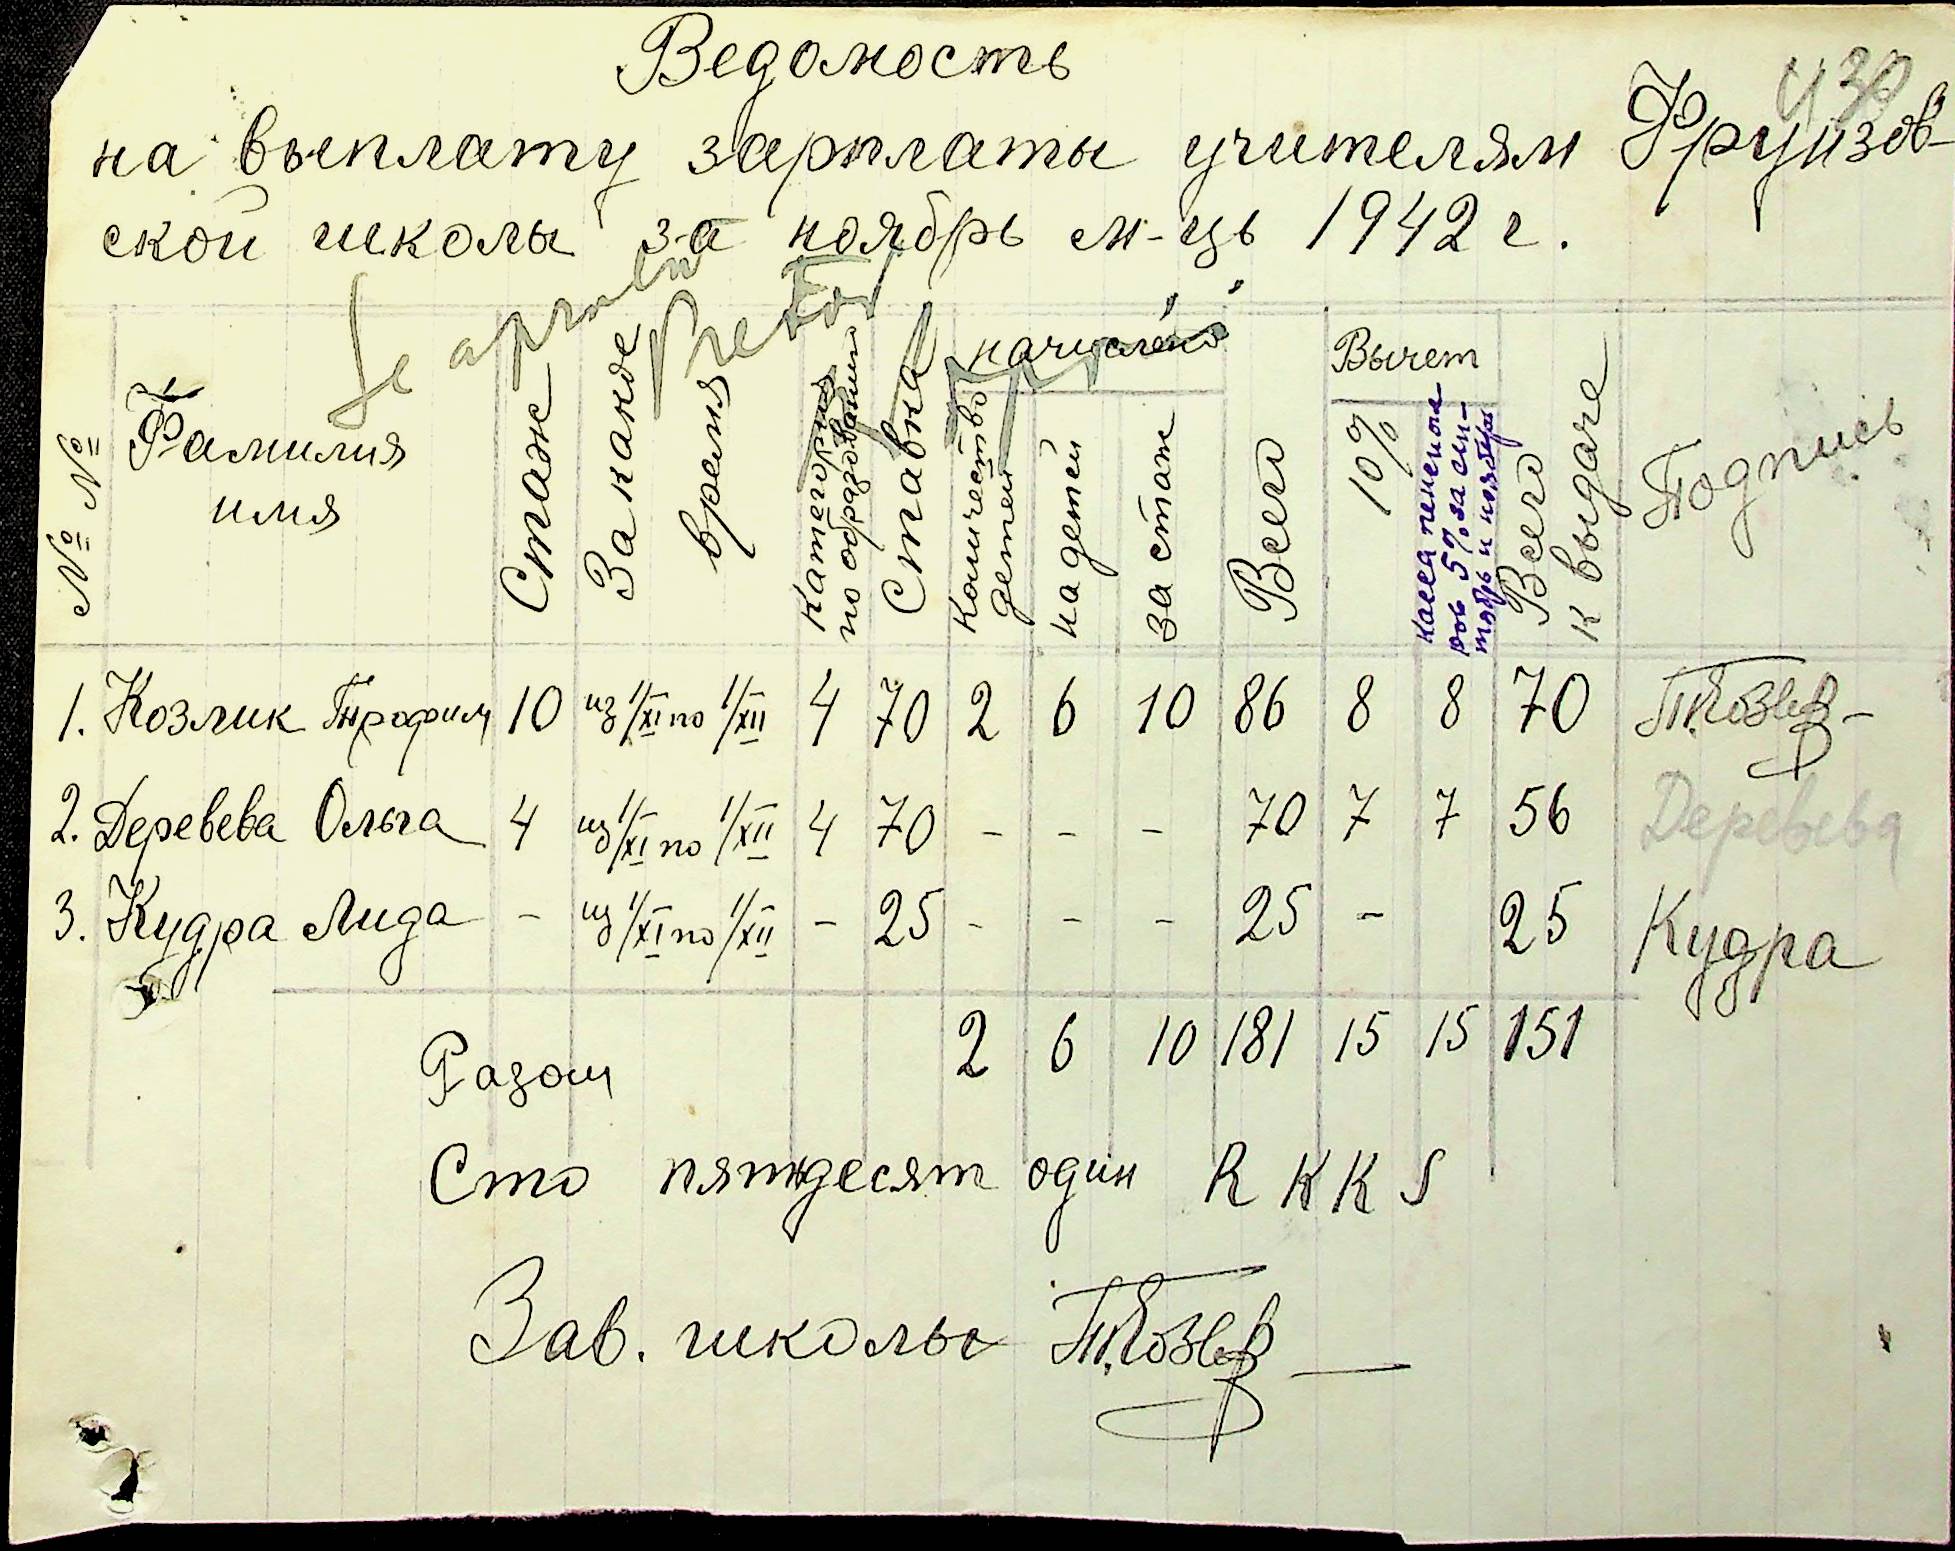 430
Ведомость
на выплату зарплаты учителям Фрунзов-
ской школы за ноябрь м-ць 1942 г.
Se aprobă
Pretor
№ № Фамилия имя Стаж За какое время Категория по образованию Ставка начислено Количество детей на детей за стаж Всего Вычет 10% касса пенсионе ров 5% за сен- тябрь и ноябрь Всего к выдаче Подпись
1. Козлик Трофим 10 из 1/XI по 1/XII 4 70 2 6 10 86 8 8 70
2. Деревева Ольга 4 из 1/XI по 1/XII 4 70 - - - 70 7 7 56 Деревева
3. Кудра Лида - из 1/XI по 1/XII - 25 - - - 25 - 25 Кудра
Разом 2 6 10 181 15 15 151
Сто пятьдесят один R K K S
Зав. школы